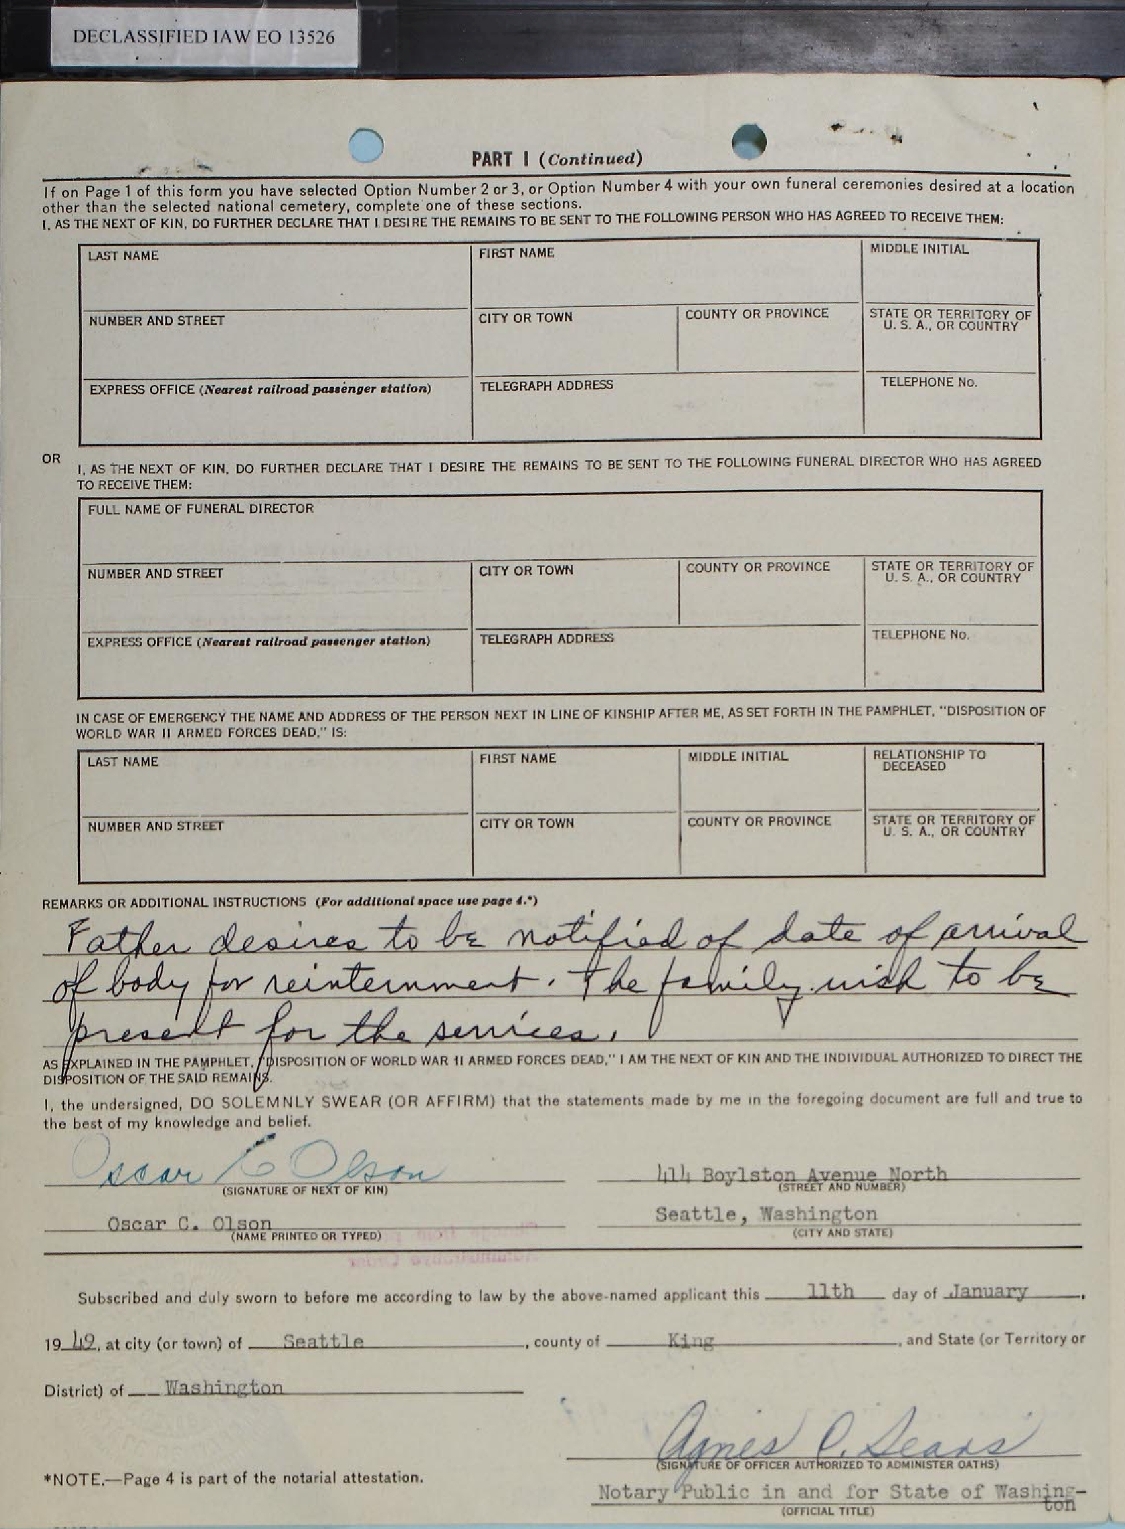 DECLASSIFIED IAW EO 13526
PART I (Continued)
If on Page 1 of this form you have selected Option Number 2 or 3, or Option Number 4 with your own funeral ceremonies desired at a location
other than the selected national cemetery, complete one of these sections.
I, AS THE NEXT OF KIN, DO FURTHER DECLARE THAT I DESIRE THE REMAINS TO BE SENT TO THE FOLLOWING PERSON WHO HAS AGREED TO RECEIVE THEM:
LAST NAME FIRST NAME MIDDLE INITIAL
NUMBER AND STREET CITY OR TOWN COUNTY OR PROVINCE STATE OR TERRITORY OF
U. S. A., OR COUNTRY
EXPRESS OFFICE (Nearest railroad passenger station) TELEGRAPH ADDRESS TELEPHONE No.
OR
I, AS THE NEXT OF KIN, DO FURTHER DECLARE THAT I DESIRE THE REMAINS TO BE SENT TO THE FOLLOWING FUNERAL DIRECTOR WHO HAS AGREED
TO RECEIVE THEM:
FULL NAME OF FUNERAL DIRECTOR
NUMBER AND STREET CITY OR TOWN COUNTY OR PROVINCE STATE OR TERRITORY OF
U. S. A., OR COUNTRY
EXPRESS OFFICE (Nearest railroad passenger station) TELEGRAPH ADDRESS TELEPHONE No.
IN CASE OF EMERGENCY THE NAME AND ADDRESS OF THE PERSON NEXT IN LINE OF KINSHIP AFTER ME, AS SET FORTH IN THE PAMPHLET, "DISPOSITION OF
WORLD WAR II ARMED FORCES DEAD," IS:
LAST NAME FIRST NAME MIDDLE INITIAL RELATIONSHIP TO
DECEASED
NUMBER AND STREET CITY OR TOWN COUNTY OR PROVINCE STATE OR TERRITORY OF
U. S. A., OR COUNTRY
REMARKS OR ADDITIONAL INSTRUCTIONS (For additional space use page 4.*)
Father desires to be notified of date of arrival
of body for reinternment. The family wish to be
present for the services.
AS EXPLAINED IN THE PAMPHLET, "DISPOSITION OF WORLD WAR II ARMED FORCES DEAD," I AM THE NEXT OF KIN AND THE INDIVIDUAL AUTHORIZED TO DIRECT THE
DISPOSITION OF THE SAID REMAINS.
I, the undersigned, DO SOLEMNLY SWEAR (OR AFFIRM) that the statements made by me in the foregoing document are full and true to
the best of my knowledge and belief.
Oscar C Olson 414 Boylston Avenue North
(SIGNATURE OF NEXT OF KIN) (STREET AND NUMBER)
Oscar C. Olson Seattle, Washington
(NAME PRINTED OR TYPED) (CITY AND STATE)
Subscribed and duly sworn to before me according to law by the above-named applicant this 11th day of January,
1949, at city (or town) of Seattle, county of King, and State (or Territory or
District) of Washington
Agnes P. Sears
*NOTE.—Page 4 is part of the notarial attestation. (SIGNATURE OF OFFICER AUTHORIZED TO ADMINISTER OATHS)
Notary Public in and for State of Washing-
ton
(OFFICIAL TITLE)